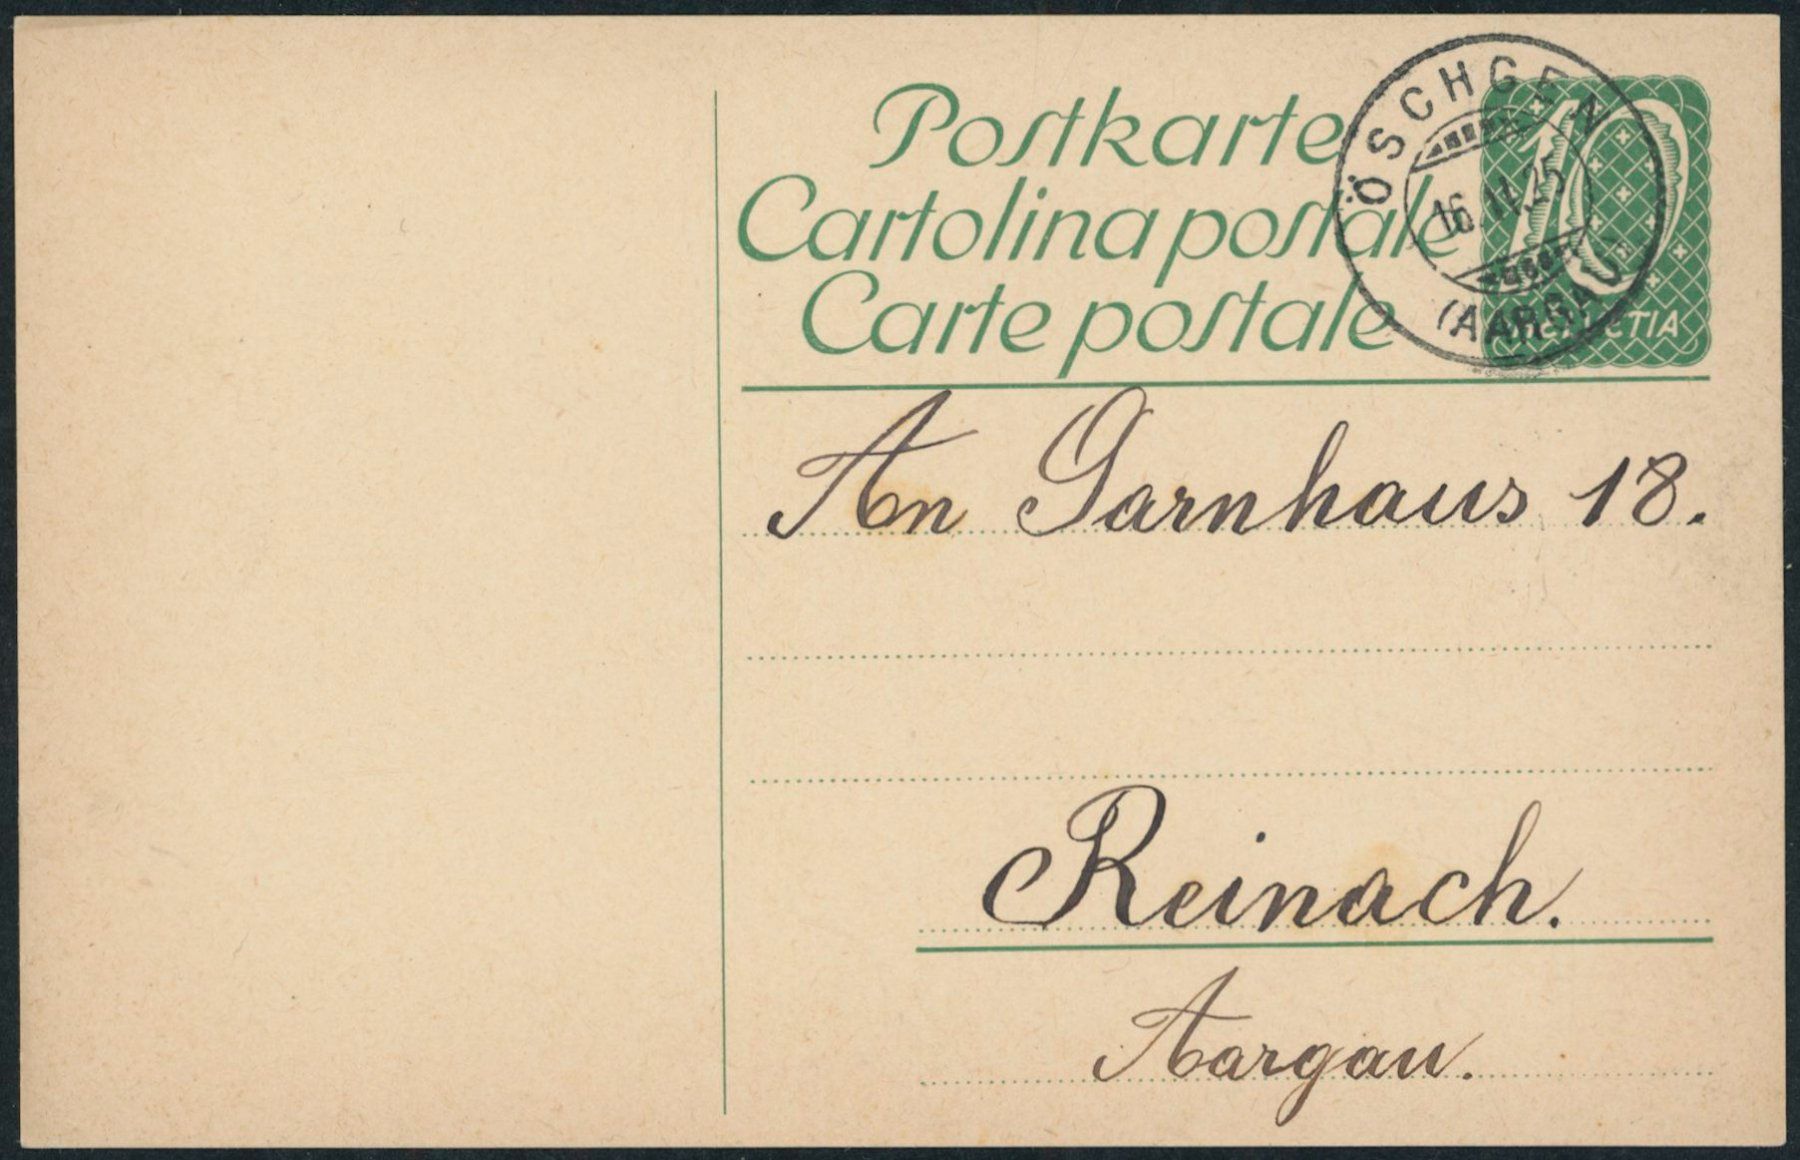 Postkarte
Cartolina postale
Carte postale
ÖSCHGEN
16.11.25
(AARGAU)
10
HELVETIA
An Garnhaus 18.
Reinach.
Aargau.